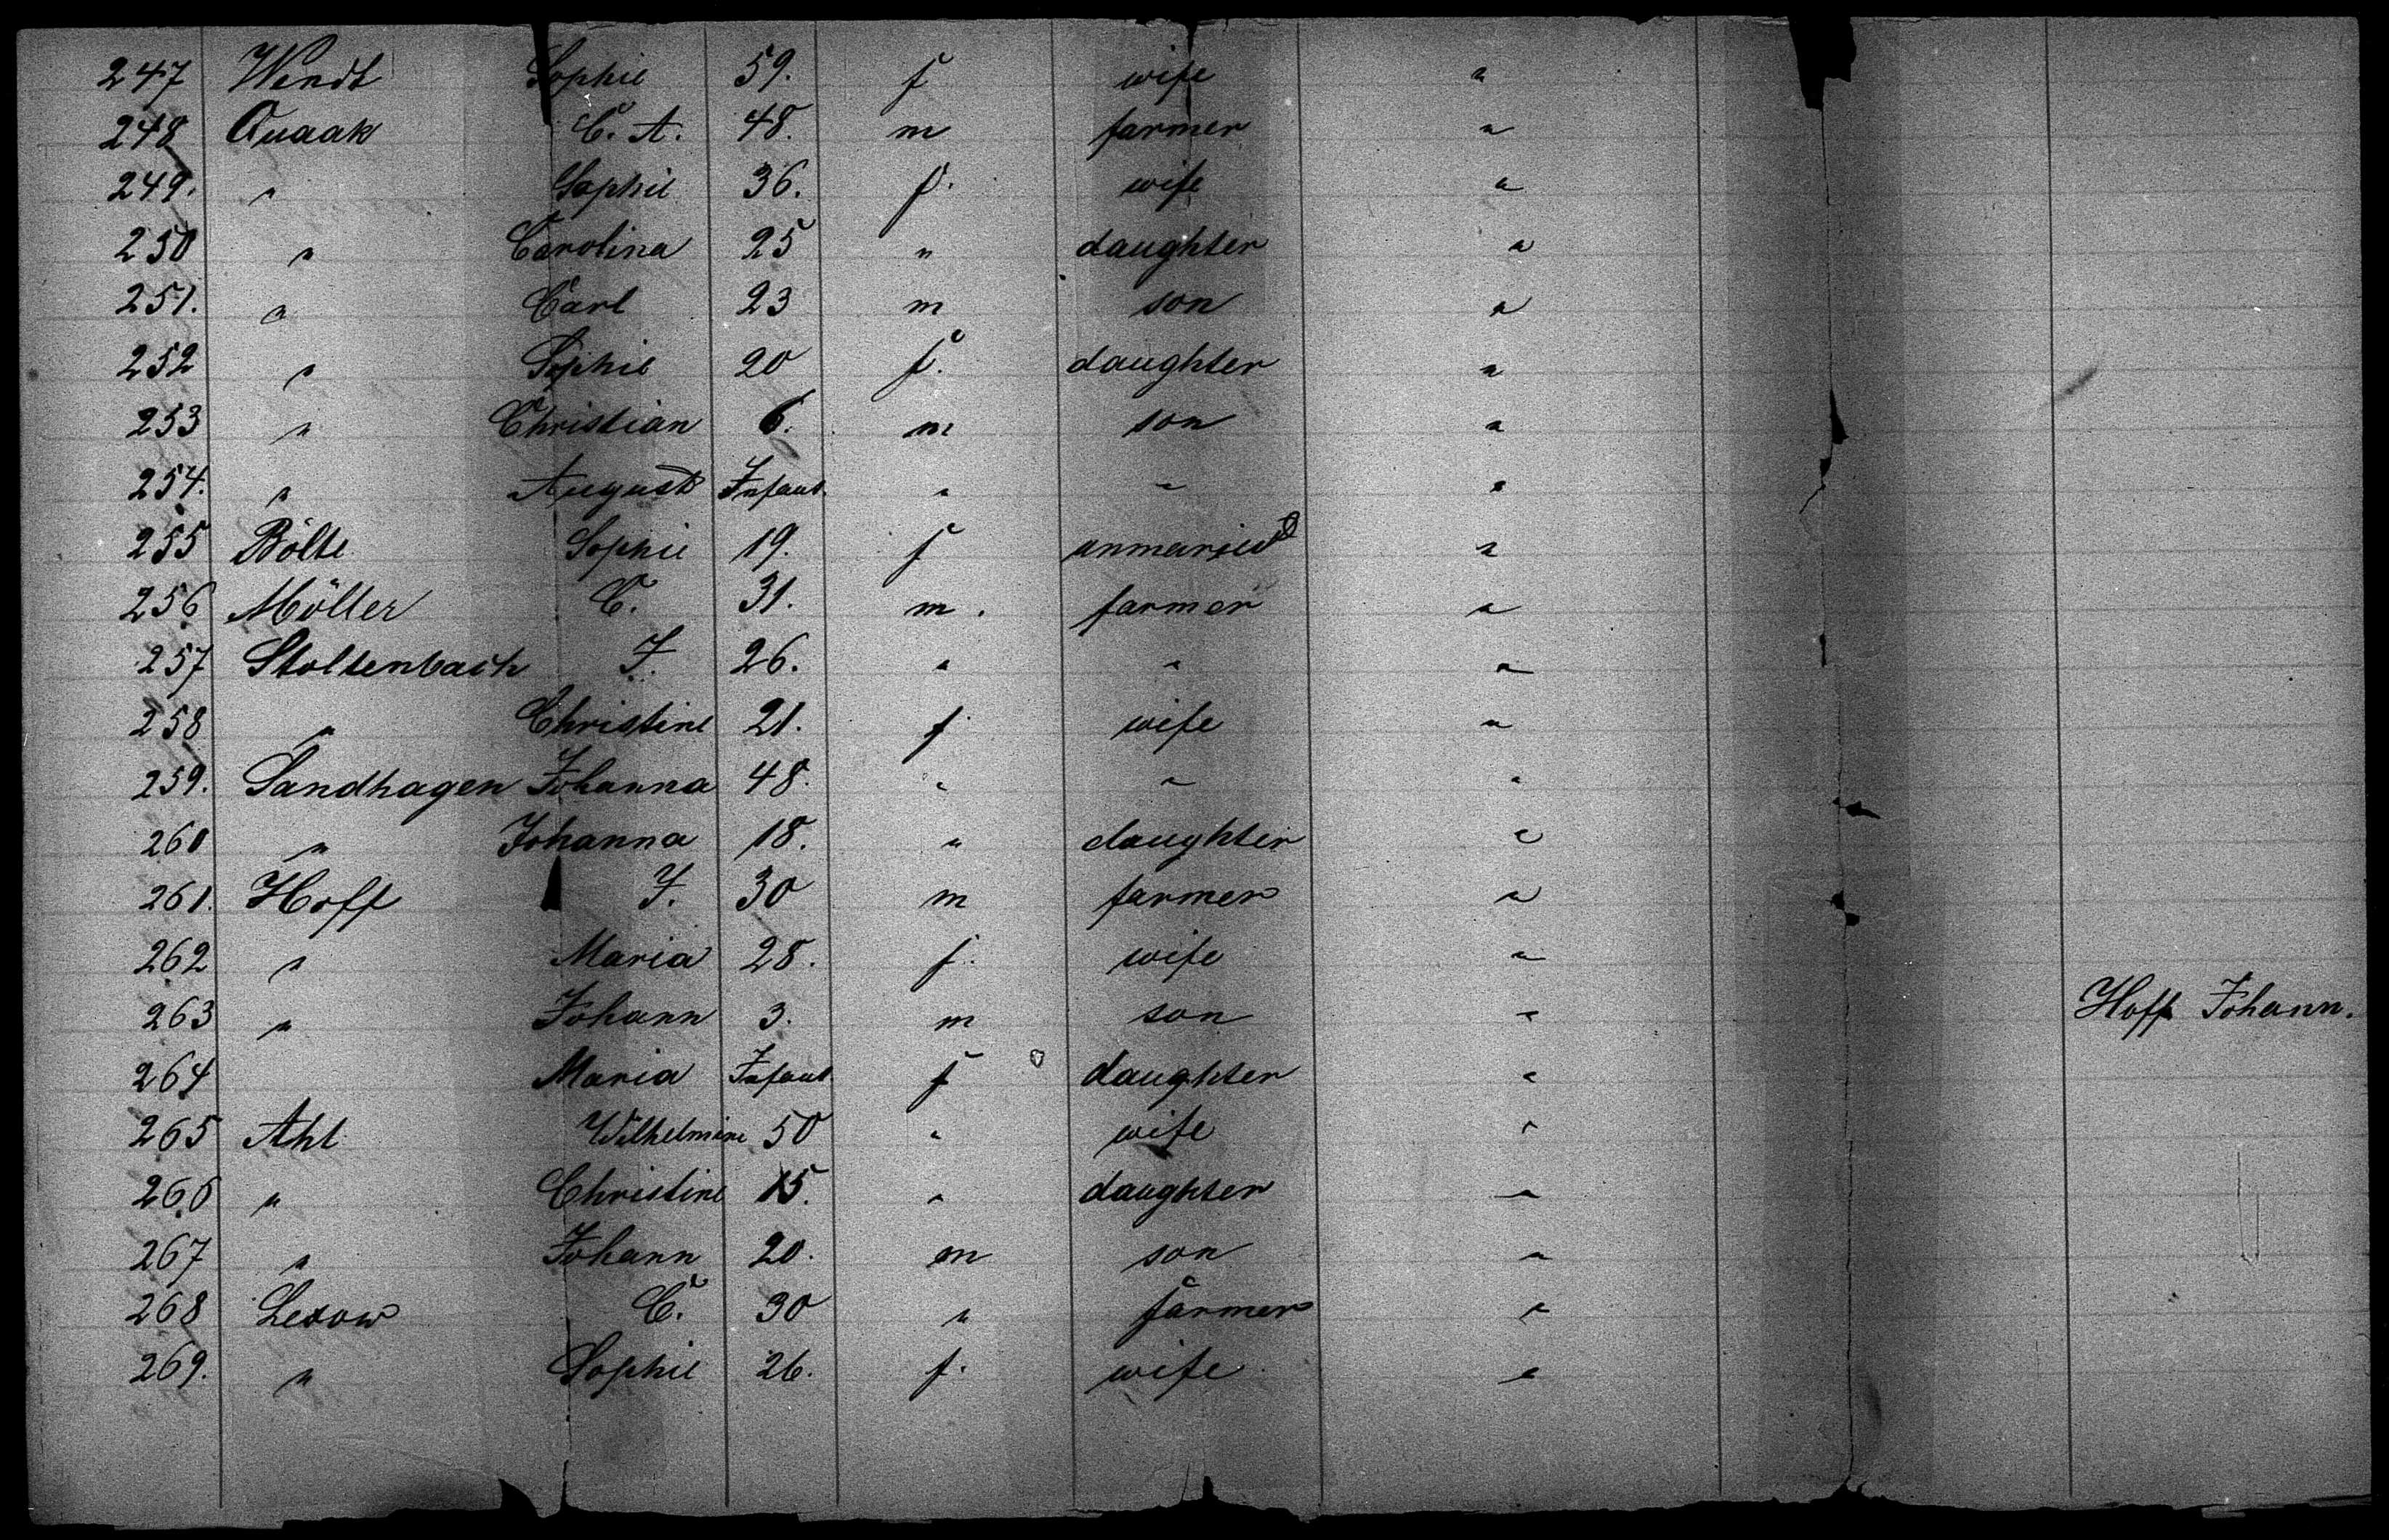 247 Wendt Sophie 59. f wife "
248 Quaak C. A. 48. m farmer "
249. " Sophie 36. f. wife "
250 " Carolina 25 " daughter "
251. " Carl 23 m son "
252 " Sophie 20 f. daughter "
253 " Christian 6. m son "
254. " August Infant " " "
255 Bölte Sophie 19. f unmaried "
256 Möller C. 31. m. farmer "
257 Stoltenbach J. 26. " " "
258 " Christine 21. f wife "
259. Sandhagen Johanna 48. " " "
260 " Johanna 18. " daughter "
261. Hoff J. 30 m farmer "
262 " Maria 28. f. wife "
263 " Johann 3. m son " Hoff Johann.
264 Maria Infant f daughter "
265 Ahl Wilhelmine 50 " wife "
266 " Christine 15. " daughter "
267 " Johann 20. m son "
268 C. 30 " farmer "
269. " Sophie 26. f. wife "